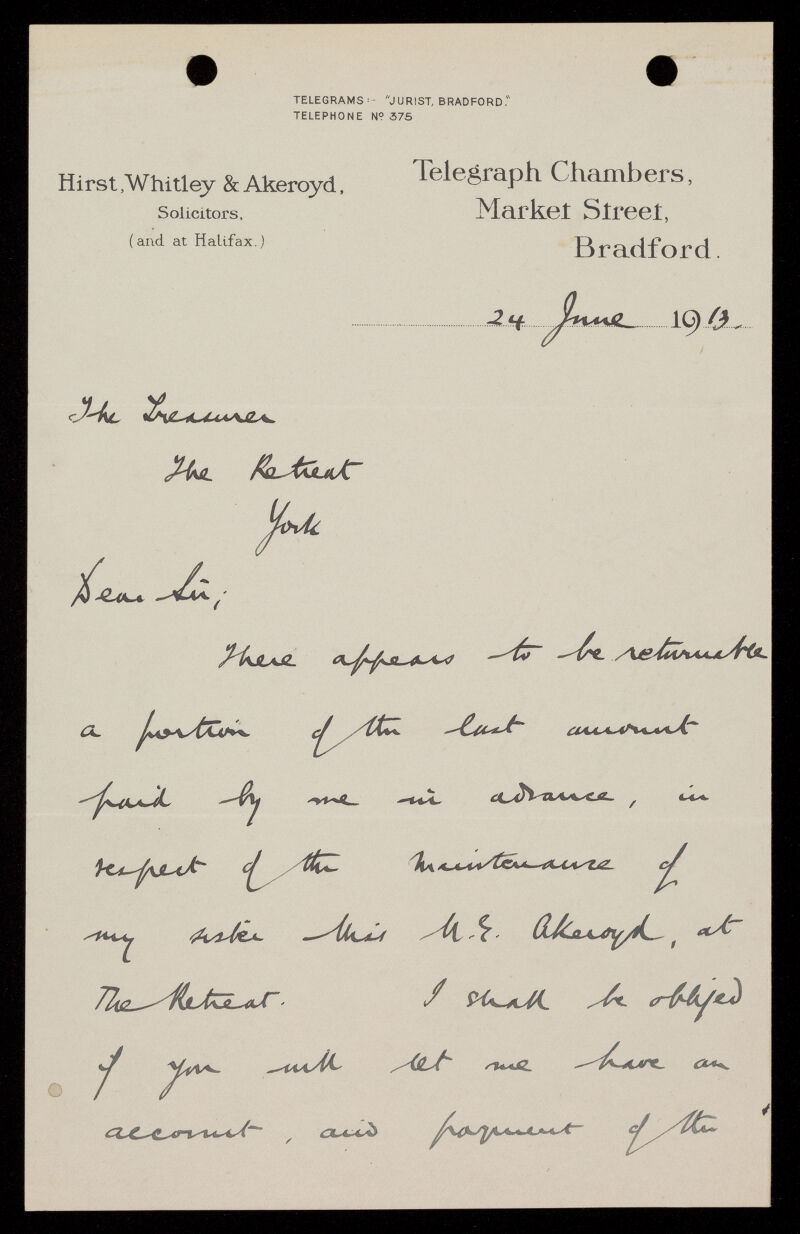 TELEGRAMS:- "JURIST, BRADFORD."
TELEPHONE Nº 375
Hirst, Whitley & Akeroyd,
Solicitors,
(and at Halifax.)
Telegraph Chambers,
Market Street,
Bradford.
24 June 1913.
The Treasurer
The Retreat
York
Dear Sir;
There appears to be returnable
a portion of the last amount
paid by me in advance, in
respect of the maintenance of
my sister Miss M.E. Akeroyd, at
The Retreat. I shall be obliged
if you will let me have an
account, and payment of the